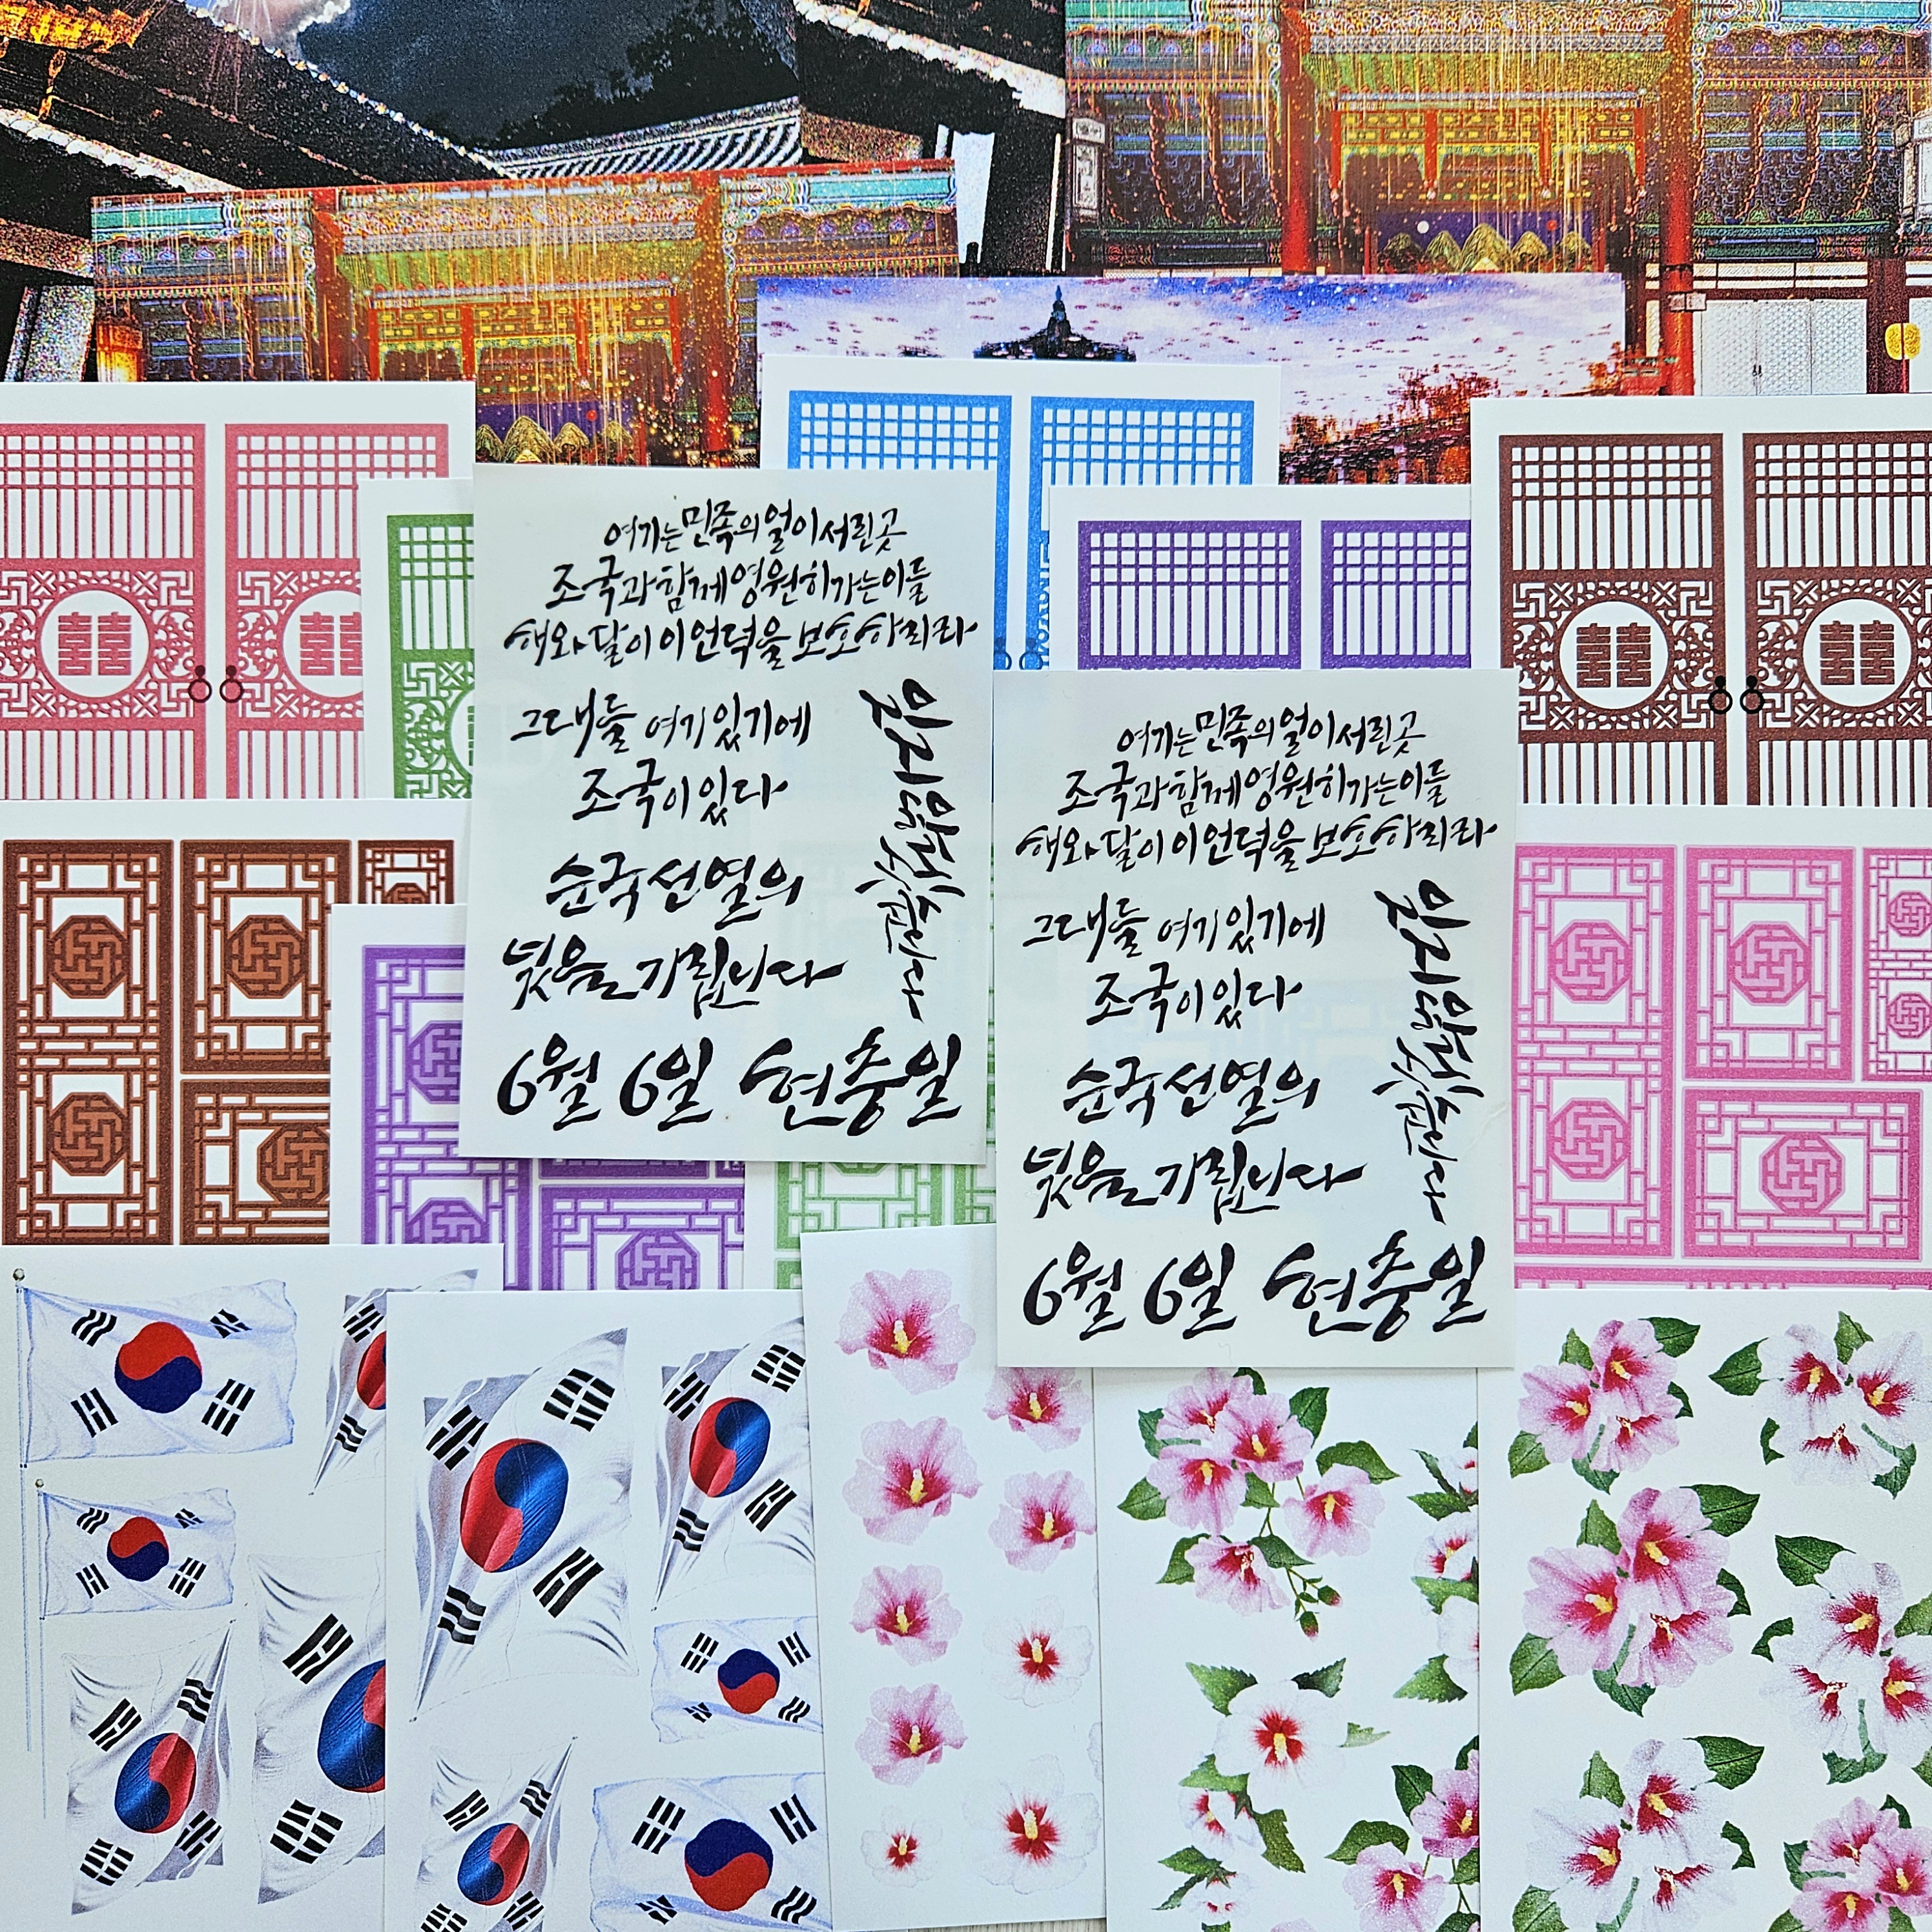 여기는 민족의 얼이 서린 곳
조국과 함께 영원히 가는 이들
해와 달이 이 언덕을 보호하리라
그대들 여기 있기에
조국이 있다
순국선열의
넋을 기립니다
잊지 않겠습니다
6월 6일 현충일
여기는 민족의 얼이 서린 곳
조국과 함께 영원히 가는 이들
해와 달이 이 언덕을 보호하리라
그대들 여기 있기에
조국이 있다
순국선열의
넋을 기립니다
잊지 않겠습니다
6월 6일 현충일
囍
囍
囍
囍